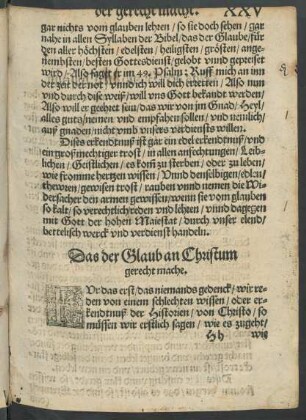 der gerecht mache. XXV
gar nichts vom glauben lehren / so sie doch sehen / gar
nahe in allen Syllaben der Bibel / das der Glaube / für
den aller höchsten / edelsten / heiligsten / grösten / ange-
nembsten / besten Gottesdienst / gelobt vnnd gepreiset
wird / Also saget er im 49. Psalm: Ruff mich an inn
der zeit der not / vnnd ich will dich erretten / Also nun
vnd durch dise weiß / will vns Gott bekandt werden /
Also will er geehret sein / das wir von jm Gnad / Heyl /
alles guts / nemen vnd empfahen sollen / vnd nemlich /
auß gnaden / nicht vmb vnsers verdiensts willen.
Dises erkendtnuß ist gar ein edel erkendtnuß / vnd
ein groß mechtiger trost / in allen anfechtungen / Leib-
lichen / Geistlichen / es kom zu sterben / oder zu leben /
wie fromme hertzen wissen / Vnnd denselbigen / edlen /
thewren / gewisen trost / rauben vnnd nemen die Wi-
dersacher den armen gewissen / wenn sie vom glauben
so kalt / so verechtlich reden vnd lehren / vnnd dagegen
mit Gott der hohen Maiestat / durch vnser elend /
bettelisch werck vnd verdienst handeln.
Das der Glaub an Christum
gerecht mache.
FVr das erst / das niemands gedenck / wir re-
den von einem schlechten wissen / oder er-
kendtnuß der Historien / von Christo / so
müssen wir erstlich sagen / wie es zugeht /
Hh wie